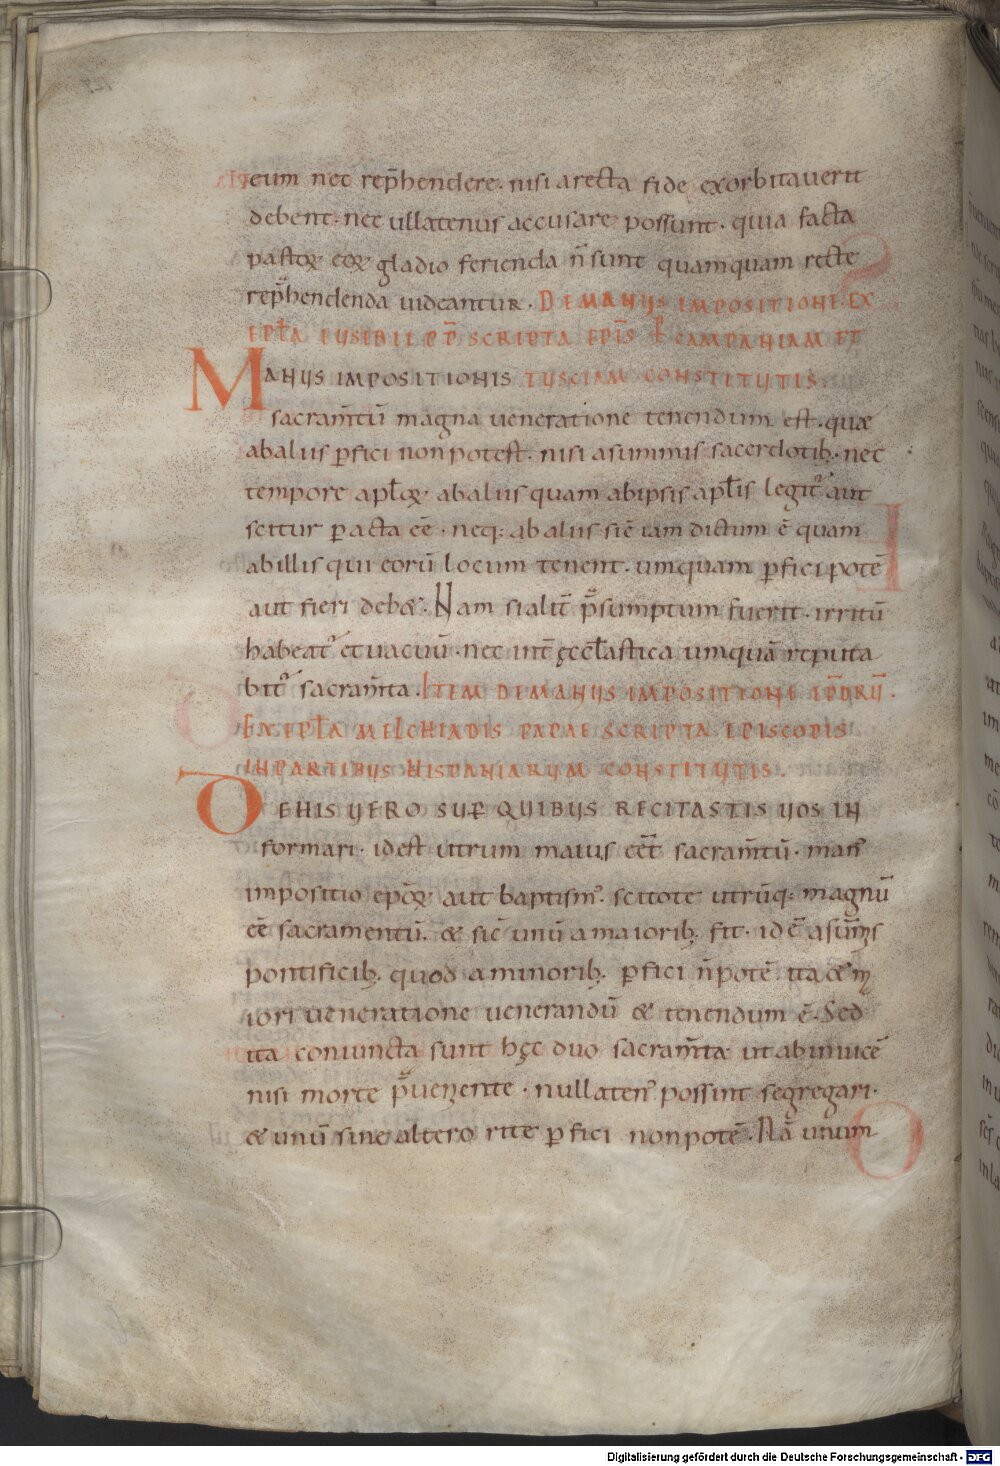 eum nec rep̄hendere. nisi a recta fide exorbitaverit
debent. nec ullatenus accusare possunt. quia facta
pastoꝝ eoꝝ gladio ferienda n̄ sunt quamquam recte
rep̄hendenda videantur. DE MANUS IMPOSITIONE. EX
EPŁA EUSEBII PP̄ SCRIPTA EPĪS P̄ CAMPANIAM ET
MANUS IMPOSITIONIS TUSCIAM CONSTITUTIS
sacram̄tū magna veneratione tenendum est. quæ
ab alius ꝑfici non potest. nisi a summis sacerdotib; nec
tempore apłoꝝ ab alus quam ab ipsis apłis legit᷑ aut
scitur ꝑacta eē. neq; ab alus sic̄ iam dictum ē quam
ab illis qui eorū locum tenent. umquam ꝑfici potē
aut fieri debet. Nam si alit̄ p̄sumptum fuerit. irritū
habeat᷑ et vacuū. nec int̄ ęccłastica umquā reputa
bit᷑ sacram̄ta. ITEM DE MANUS IMPOSITIONE EP̄ORŪ.
EX EPŁA MELCHIADIS PAPAE SCRIPTA EPISCOPIS
IN PARTIBUS HISPANIARUM CONSTITUTIS.
DE HIS VERO SUP̄ QUIBUS RECITASTIS VOS IN
formari. id est utrum maius eēt sacram̄tū. man᷒
impositio ep̄coꝝ aut baptism᷒. scitote utrūq; magnū
eē sacramentū. & sic̄ unū a maiorib; fit. id ē a sūmis
pontificib; quod a minorib; ꝑfici n̄ potē ita & m
iori veneratione venerandū & tenendum ē. Sed
ita coniuncta sunt hęc duo sacram̄ta ut ab invicē
nisi morte p̄veniente. nullaten᷒ possint segregari.
& unū sine altero rite ꝑfici non potē. Nā unum
Digitalisierung gefördert durch die Deutsche Forschungsgemeinschaft - DFG